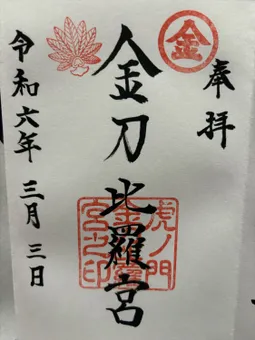 奉拝
金
金刀比羅宮
虎ノ門
金刀比羅
宮之印
令和六年三月三日